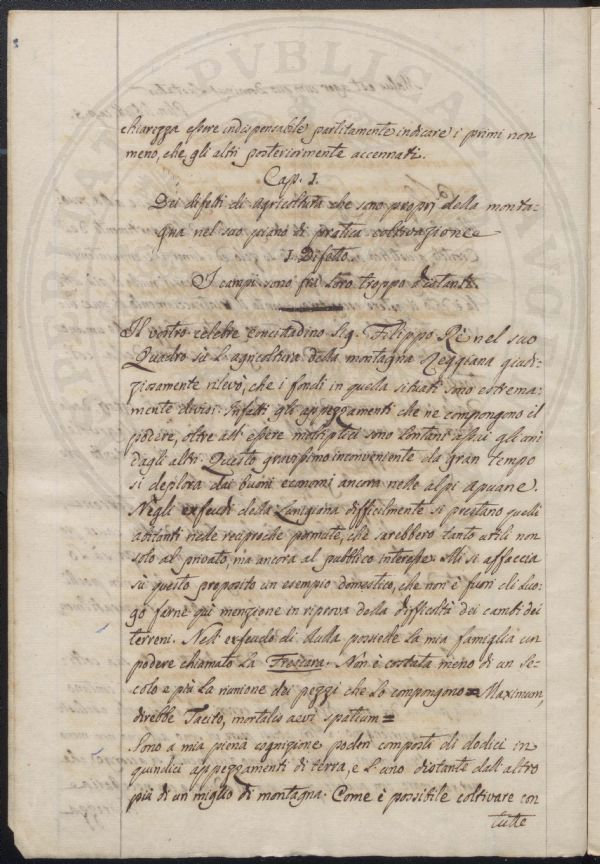 chiarezza essere indispensabile partitamente indicare i primi non
meno, che gli altri posteriormente accennati.
Cap. I.
Dei difetti di agricoltura che sono proprj della monta-
gna nel suo piano di pratica coltivazione
I. Difetto.
I campi sono fra loro troppo distanti.
Il vostro celebre concittadino Sig. Filippo Rè nel suo
Quadro su l'agricoltura della montagna Reggiana giudi-
ziosamente rilevò, che i fondi in quella situati sono estrema-
mente divisi. Infatti gli appezzamenti che ne compongono il
podere, oltre all'essere moltiplici sono lontani assai gli uni
dagli altri. Questo gravissimo inconveniente da gran tempo
si deplora dai buoni economi ancora nelle alpi apuane.
Negli exfeudi della Lunigiana difficilmente si prestano quelli
abitanti nelle reciproche permute, che sarebbero tanto utili non
solo al privato, ma ancora al pubblico interesse. Mi si affaccia
su questo proposito un esempio domestico, che non è fuori di luo-
go farne quì menzione in riprova della difficultà dei cambi dei
terreni. Nell'exfeudo di possiede la mia famiglia un
podere chiamato la. Non è costata meno di un se-
colo e più la riunione dei pezzi che lo compongono = Maximum,
direbbe Tacito, mortalis aevi spatium =
Sono a mia piena cognizione poderi composti di dodici in
quindici appezzamenti di terra, e l'uno distante dall'altro
più di un miglio di montagna. Come è possibile coltivare con
tutte